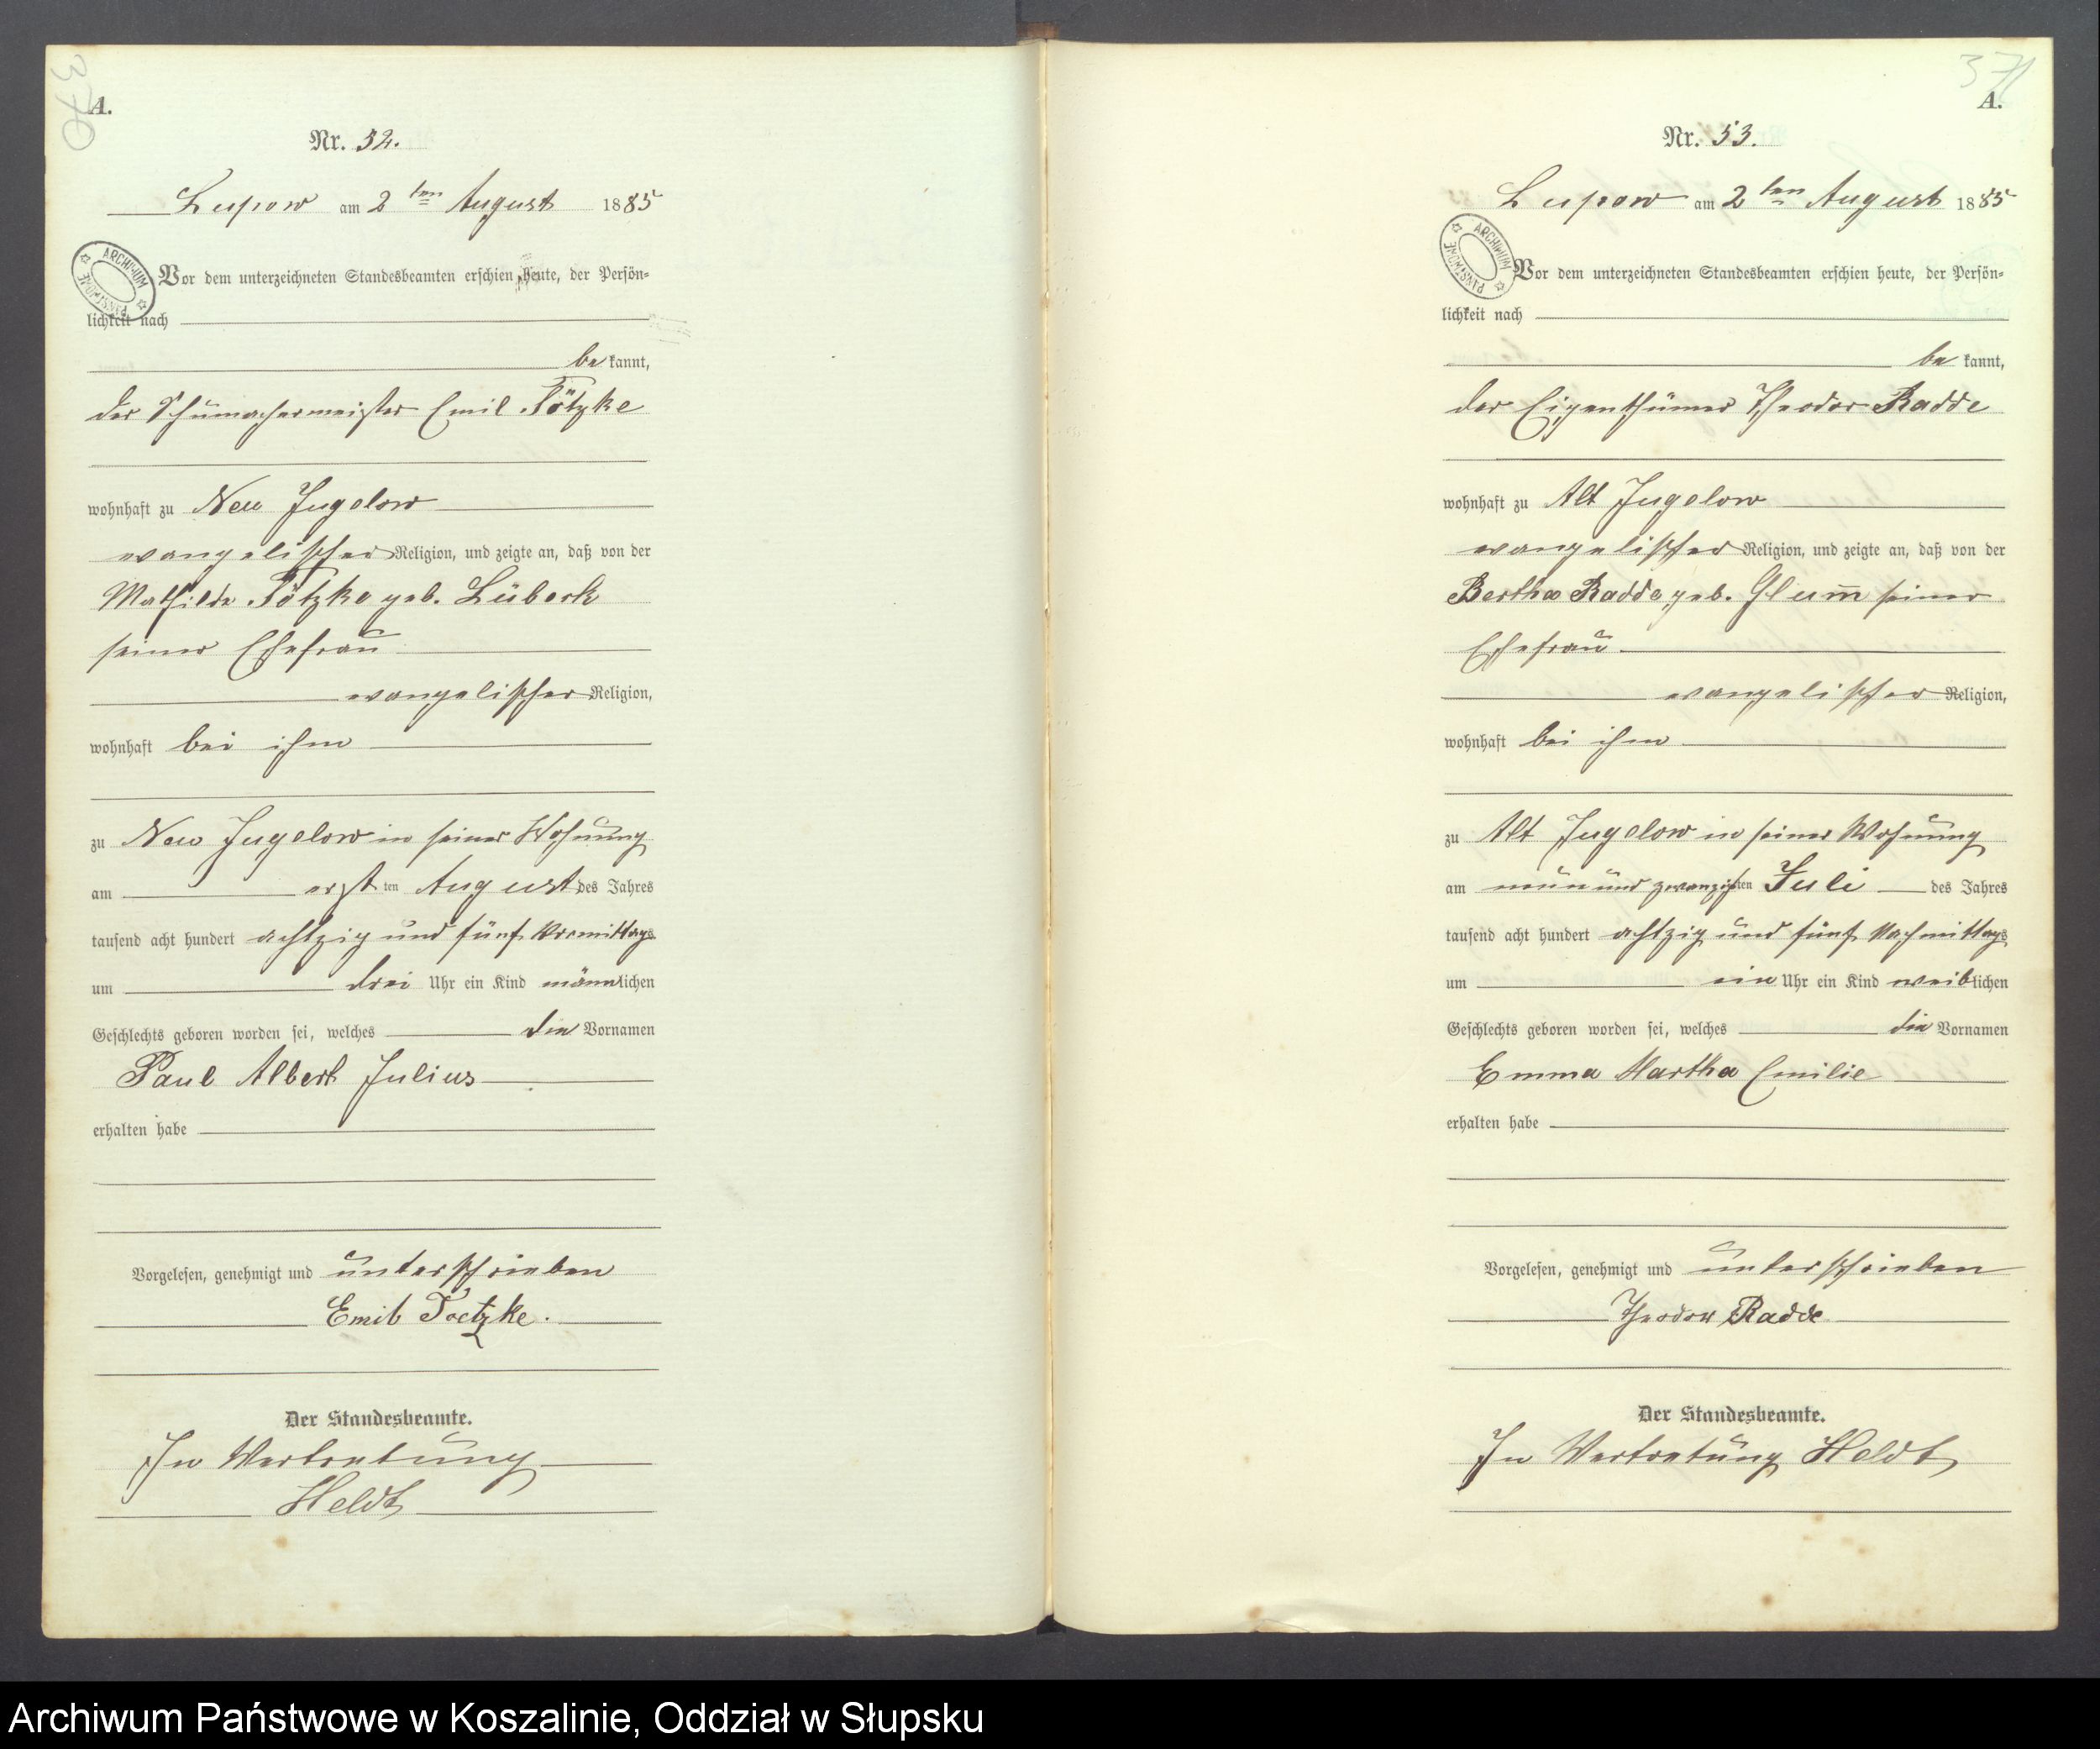 370
A.
Nr. 52.
Lupow am 2ten August 1885
ARCHIWUM PAŃSTWOWE
Vor dem unterzeichneten Standesbeamten erschien heute, der Persön-
lichkeit nach
bekannt,
der Schumachermeister Emil Tötzke
wohnhaft zu Neu Jugelow
evangelischer Religion, und zeigte an, daß von der
Mathilde Tötzke geb. Lübeck
seiner Ehefrau
evangelischer Religion,
wohnhaft bei ihm
zu Neu Jugelow in seiner Wohnung
am ersten August des Jahres
tausend acht hundert achtzig und fünf Vormittags
um drei Uhr ein Kind männlichen
Geschlechts geboren worden sei, welches die Vornamen
Paul Albert Julius
erhalten habe
Vorgelesen, genehmigt und unterschrieben
Emil Toetzke.
Der Standesbeamte.
In Vertretung
Heldt
371
A.
Nr. 53.
Lupow am 2ten August 1885
ARCHIWUM PAŃSTWOWE
Vor dem unterzeichneten Standesbeamten erschien heute, der Persön-
lichkeit nach
bekannt,
der Eigenthümer Theodor Radde
wohnhaft zu Alt Jugelow
evangelischer Religion, und zeigte an, daß von der
Bertha Radde geb. Glum̅ seiner
Ehefrau
evangelischer Religion,
wohnhaft bei ihm
zu Alt Jugelow in seiner Wohnung
am neun und zwanzigsten Juli des Jahres
tausend acht hundert achtzig und fünf Nachmittags
um ein Uhr ein Kind weiblichen
Geschlechts geboren worden sei, welches die Vornamen
Emma Martha Emilie
erhalten habe
Vorgelesen, genehmigt und unterschrieben
Theodor Radde
Der Standesbeamte.
In Vertretung Heldt
Archiwum Państwowe w Koszalinie, Oddział w Słupsku